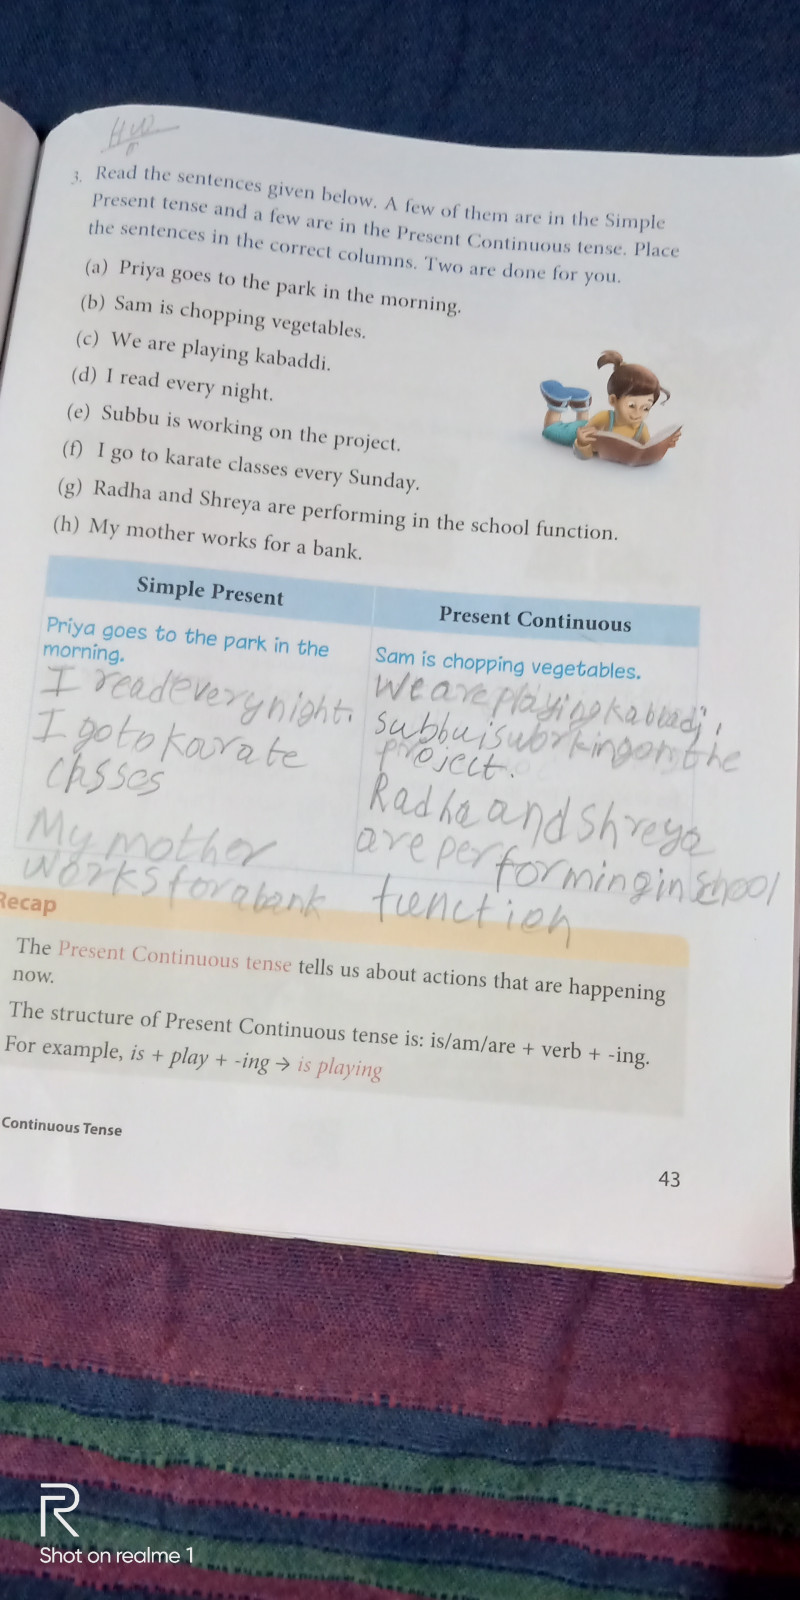 HW
3. Read the sentences given below. A few of them are in the Simple
Present tense and a few are in the Present Continuous tense. Place
the sentences in the correct columns. Two are done for you.
(a) Priya goes to the park in the morning.
(b) Sam is chopping vegetables.
(c) We are playing kabaddi.
(d) I read every night.
(e) Subbu is working on the project.
(f) I go to karate classes every Sunday.
(g) Radha and Shreya are performing in the school function.
(h) My mother works for a bank.
Simple Present
Priya goes to the park in the
morning.
I read every night.
I go to karate
classes
My mother
works for a bank
Present Continuous
Sam is chopping vegetables.
We are playing kabbadi.
subbu is working on the
project.
Radha and Shreya
are performing in school
function
Recap
The Present Continuous tense tells us about actions that are happening
now.
The structure of Present Continuous tense is: is/am/are + verb + -ing.
For example, is + play + -ing → is playing
Continuous Tense
43
R
Shot on realme 1